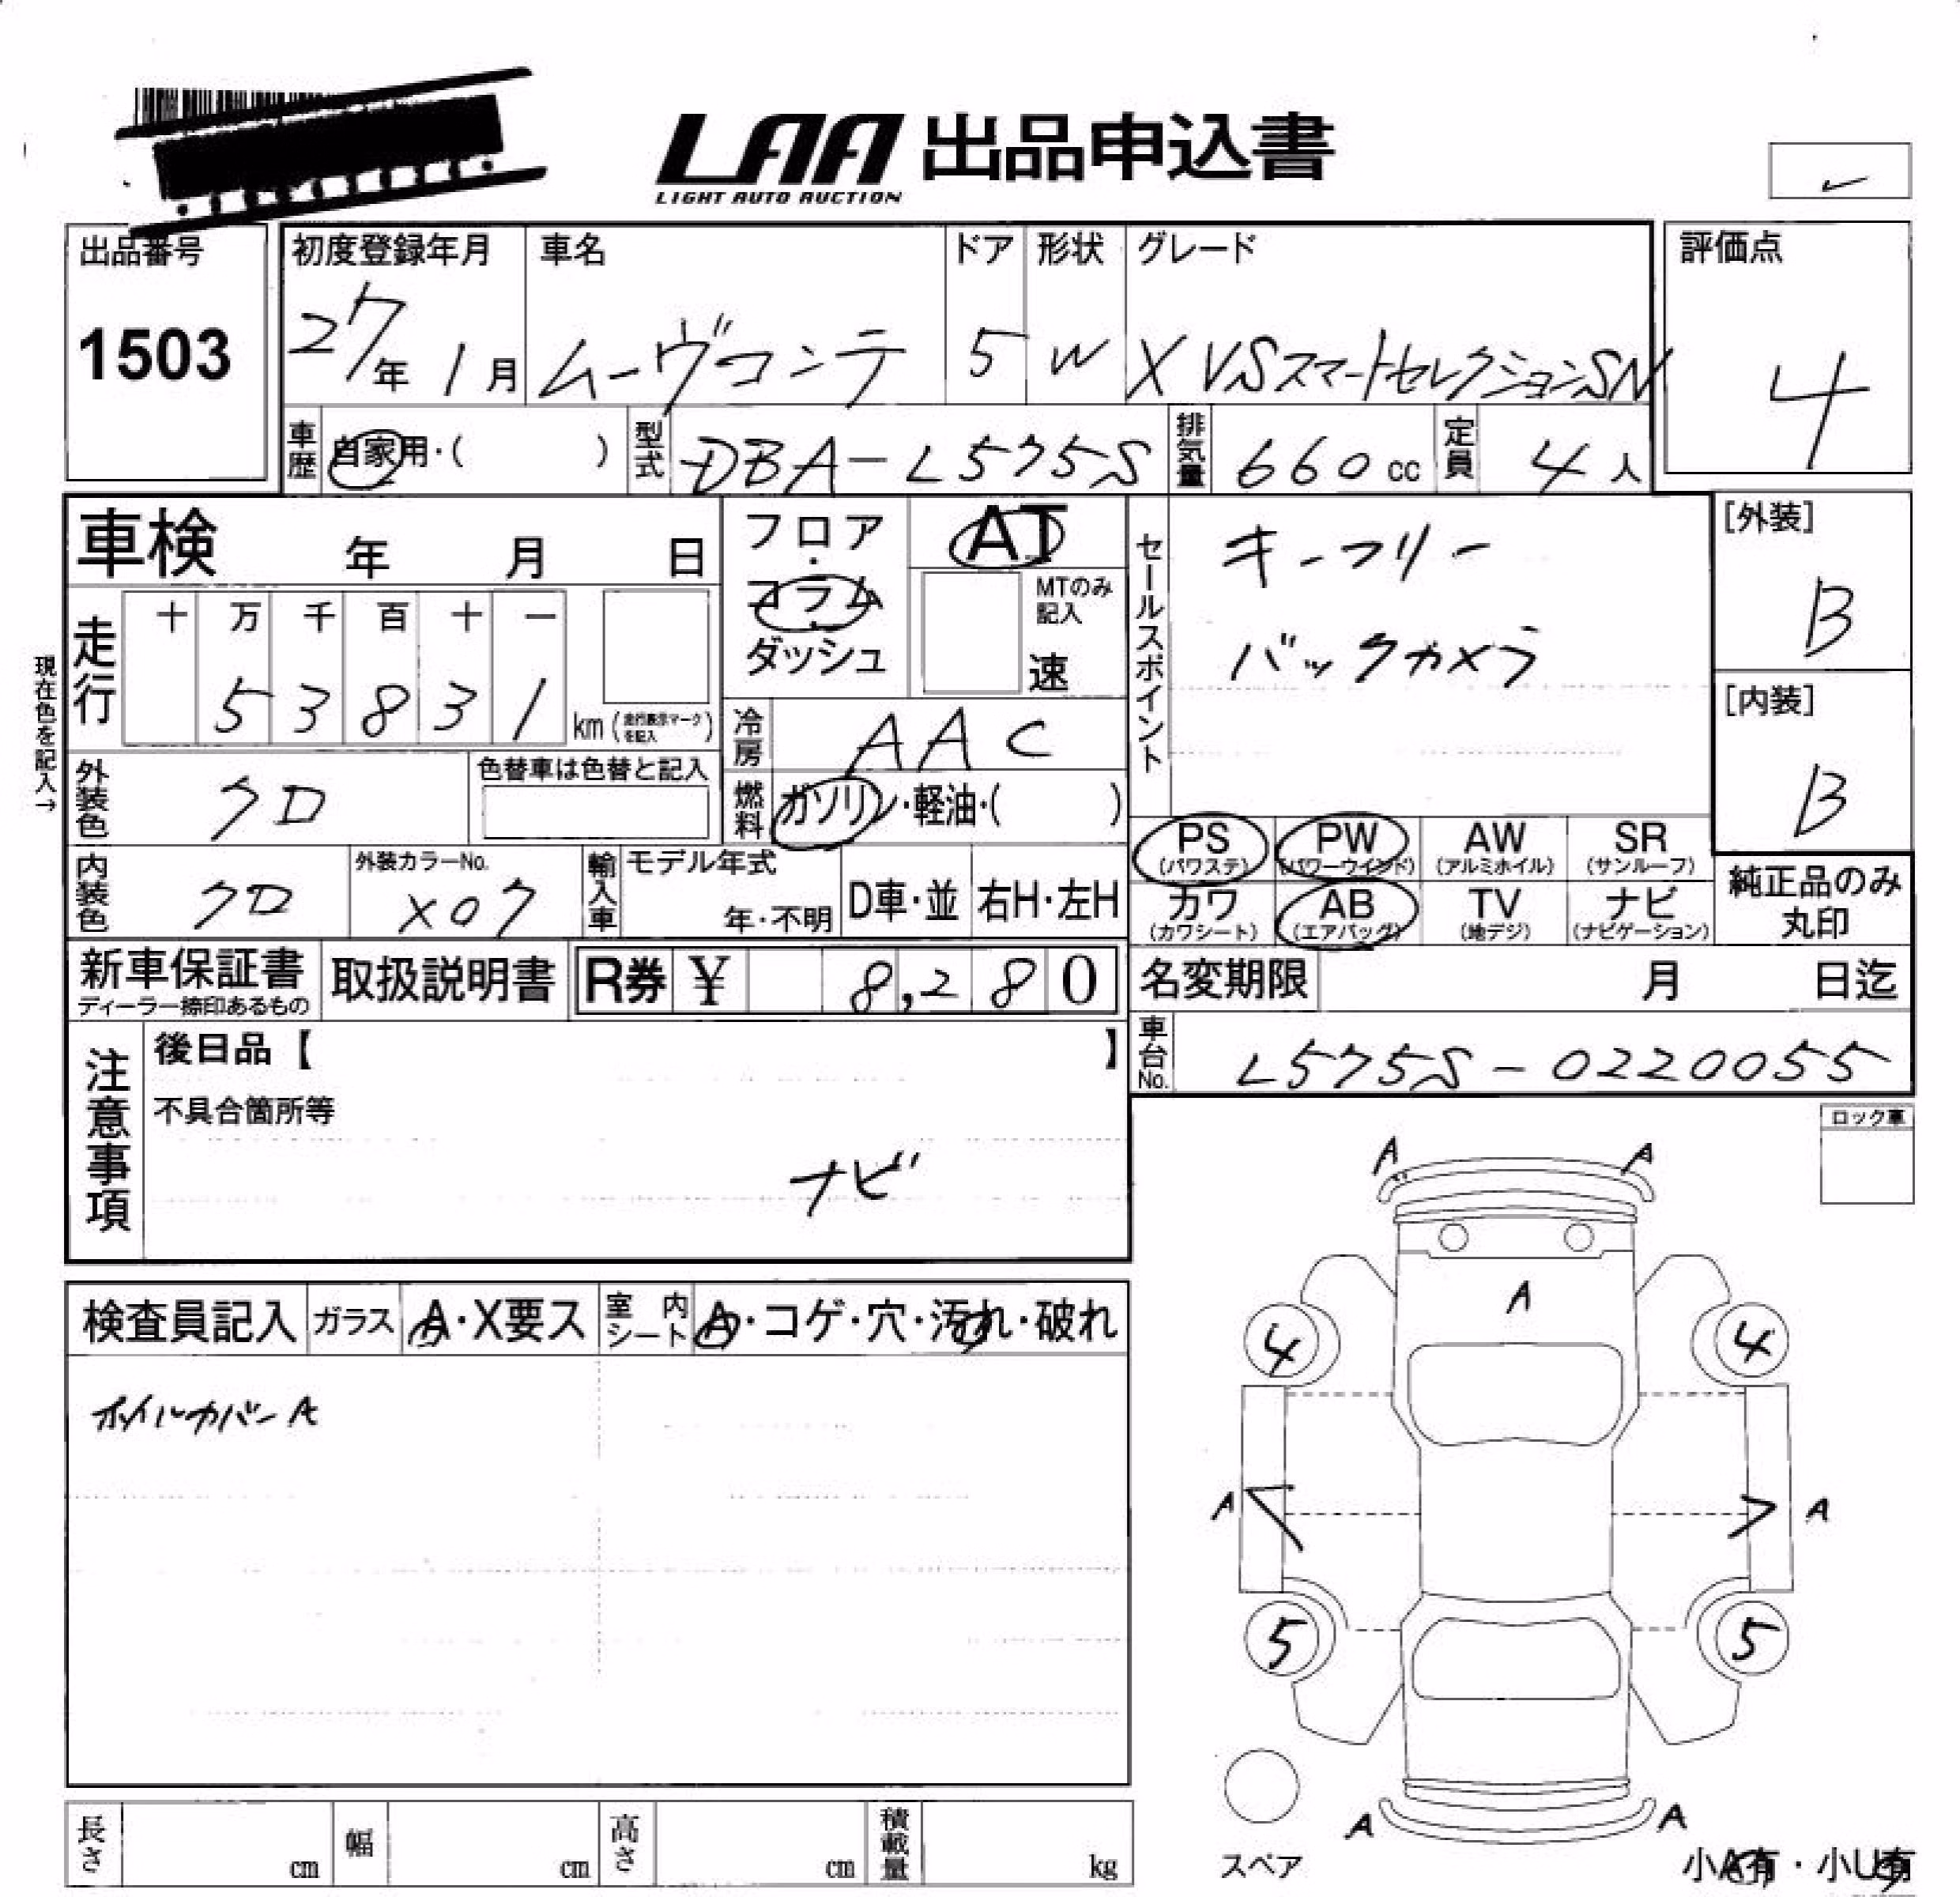 LAA 出品申込書
LIGHT AUTO AUCTION
出品番号
1503
初度登録年月 車名 ドア 形状 グレード
27年 1月 ムーヴコンテ 5 W X VSスマートセレクションSN
評価点
4
車歴 自家用・( ) 型式 DBA-L575S 排気量 660cc 定員 4人
車検 年 月 日
フロア・コラム・ダッシュ
AT
MTのみ記入
速
セールスポイント
キーフリー
バックカメラ
[外装]
B
[内装]
B
現在色を記入→
走行 十 万 千 百 十 一
5 3 8 3 1 km (走行表示マークを記入)
冷房 AAC
外装色 クロ 色替車は色替と記入
燃料 ガソリン・軽油・( )
PS (パワステ) PW (パワーウインド) AW (アルミホイル) SR (サンルーフ)
カワ (カワシート) AB (エアバッグ) TV (地デジ) ナビ (ナビゲーション)
純正品のみ丸印
内装色 クロ 外装カラーNo. X07 輸入車 モデル年式 年・不明 D車・並 右H・左H
新車保証書 ディーラー捺印あるもの 取扱説明書 R券 ¥ 8,280
名変期限 月 日迄
車台No. L575S-0220055
注意事項
後日品【 】
不具合箇所等
ナビ
ロック車
検査員記入 ガラス A・X要ス 室内シート A・コゲ・穴・汚れ・破れ
ホイルカバーA
A A
A
4 4
A A
5 5
A A
スペア
小A有・小U有
長さ cm 幅 cm 高さ cm 積載量 kg